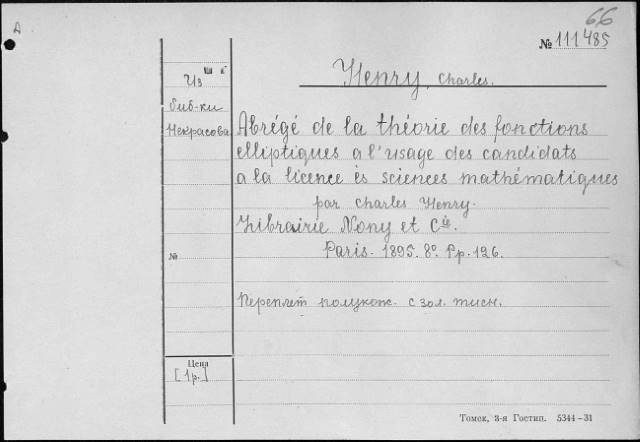 A
66
№ 111485
Henry, Charles.
Из
биб-ки
Некрасова
Abrégé de la théorie des fonctions
elliptiques a l'usage des candidats
a la licence ès sciences mathématiques
par Charles Henry.
Librairie Nony et Cie.
Paris. 1895. 8º. Pp. 126.
№
Переплет полукож. с зол. тисн.
Цена
[1 р.]
Томск, 3-я Гостип. 5344—31